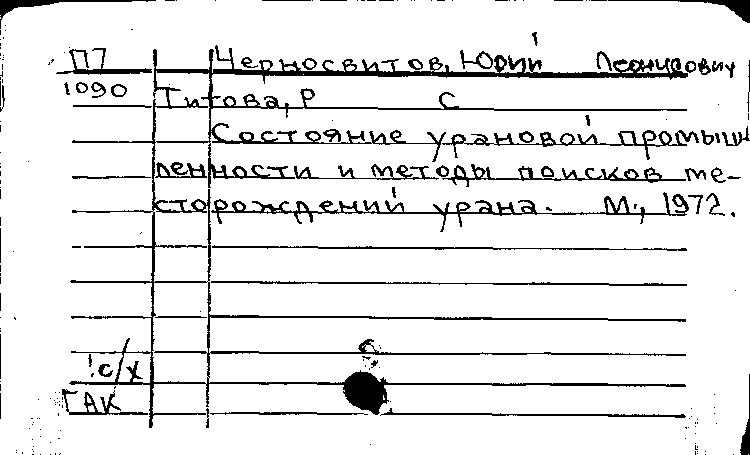 П7 Черносвитов, Юрий Леонидович
1090 Титова, Р С
Состояние урановой промыш
ленности и методы поисков ме-
сторождений урана. М., 1972.
!с/х
ГАК